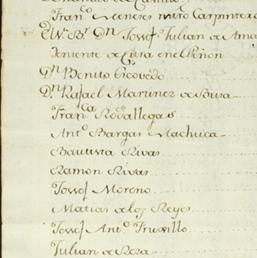 Fran.co Meneses mro Carpintero
El Sr Br Dn Josef Julian de
Teniente de Cura en el Peñon
Dn Benito Escovedo
Dn Rafael Martinez de
Fran.ca Rovallegas
Anto Bargas Machuica
Bautista Rivas
Ramon Rivas
Josef Moreno
Matias de los Reyes
Josef Anto Truxillo
Julian de Rosa